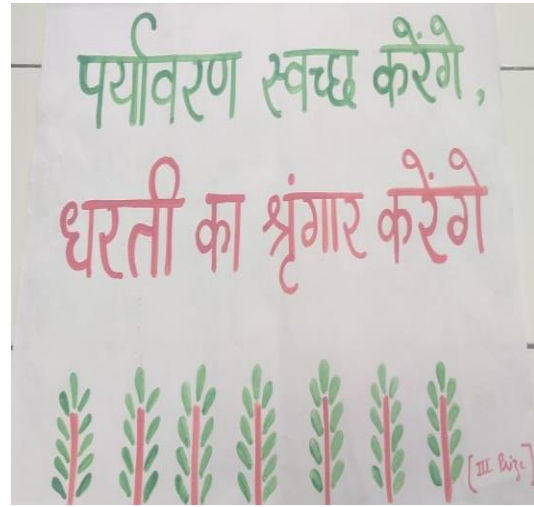 पर्यावरण स्वच्छ करेंगे,
धरती का श्रृंगार करेंगे
[III Prize]